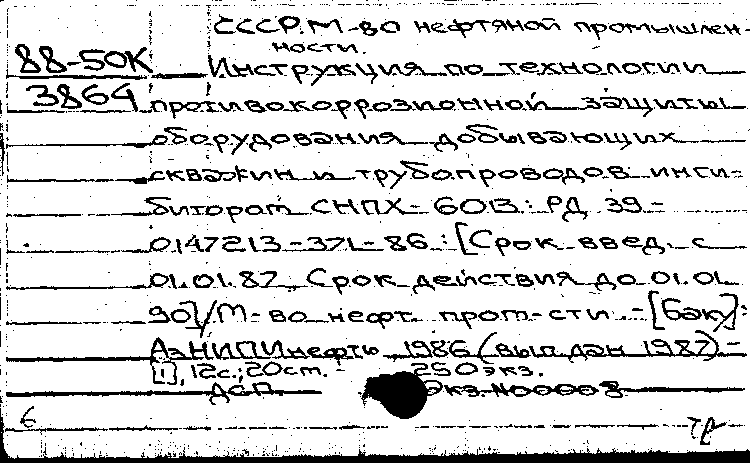 СССР. М-во нефтяной промышлен-
ности.
88-50К
Инструкция по технологии
3864
противокоррозионной защиты
оборудования добывающих
скважин и трубопроводов инги-
битором СНПХ-6013: РД 39-
0147213-371-86: [Срок введ. с
01.01.87. Срок действия до 01.01.
90]/М-во нефт. пром-сти. - [Баку]:
АзНИПИнефть, 1986 (вып. дан 1987). -
[1], 12с.; 20см. - 250 экз.
ДСП. Экз. N00008
6